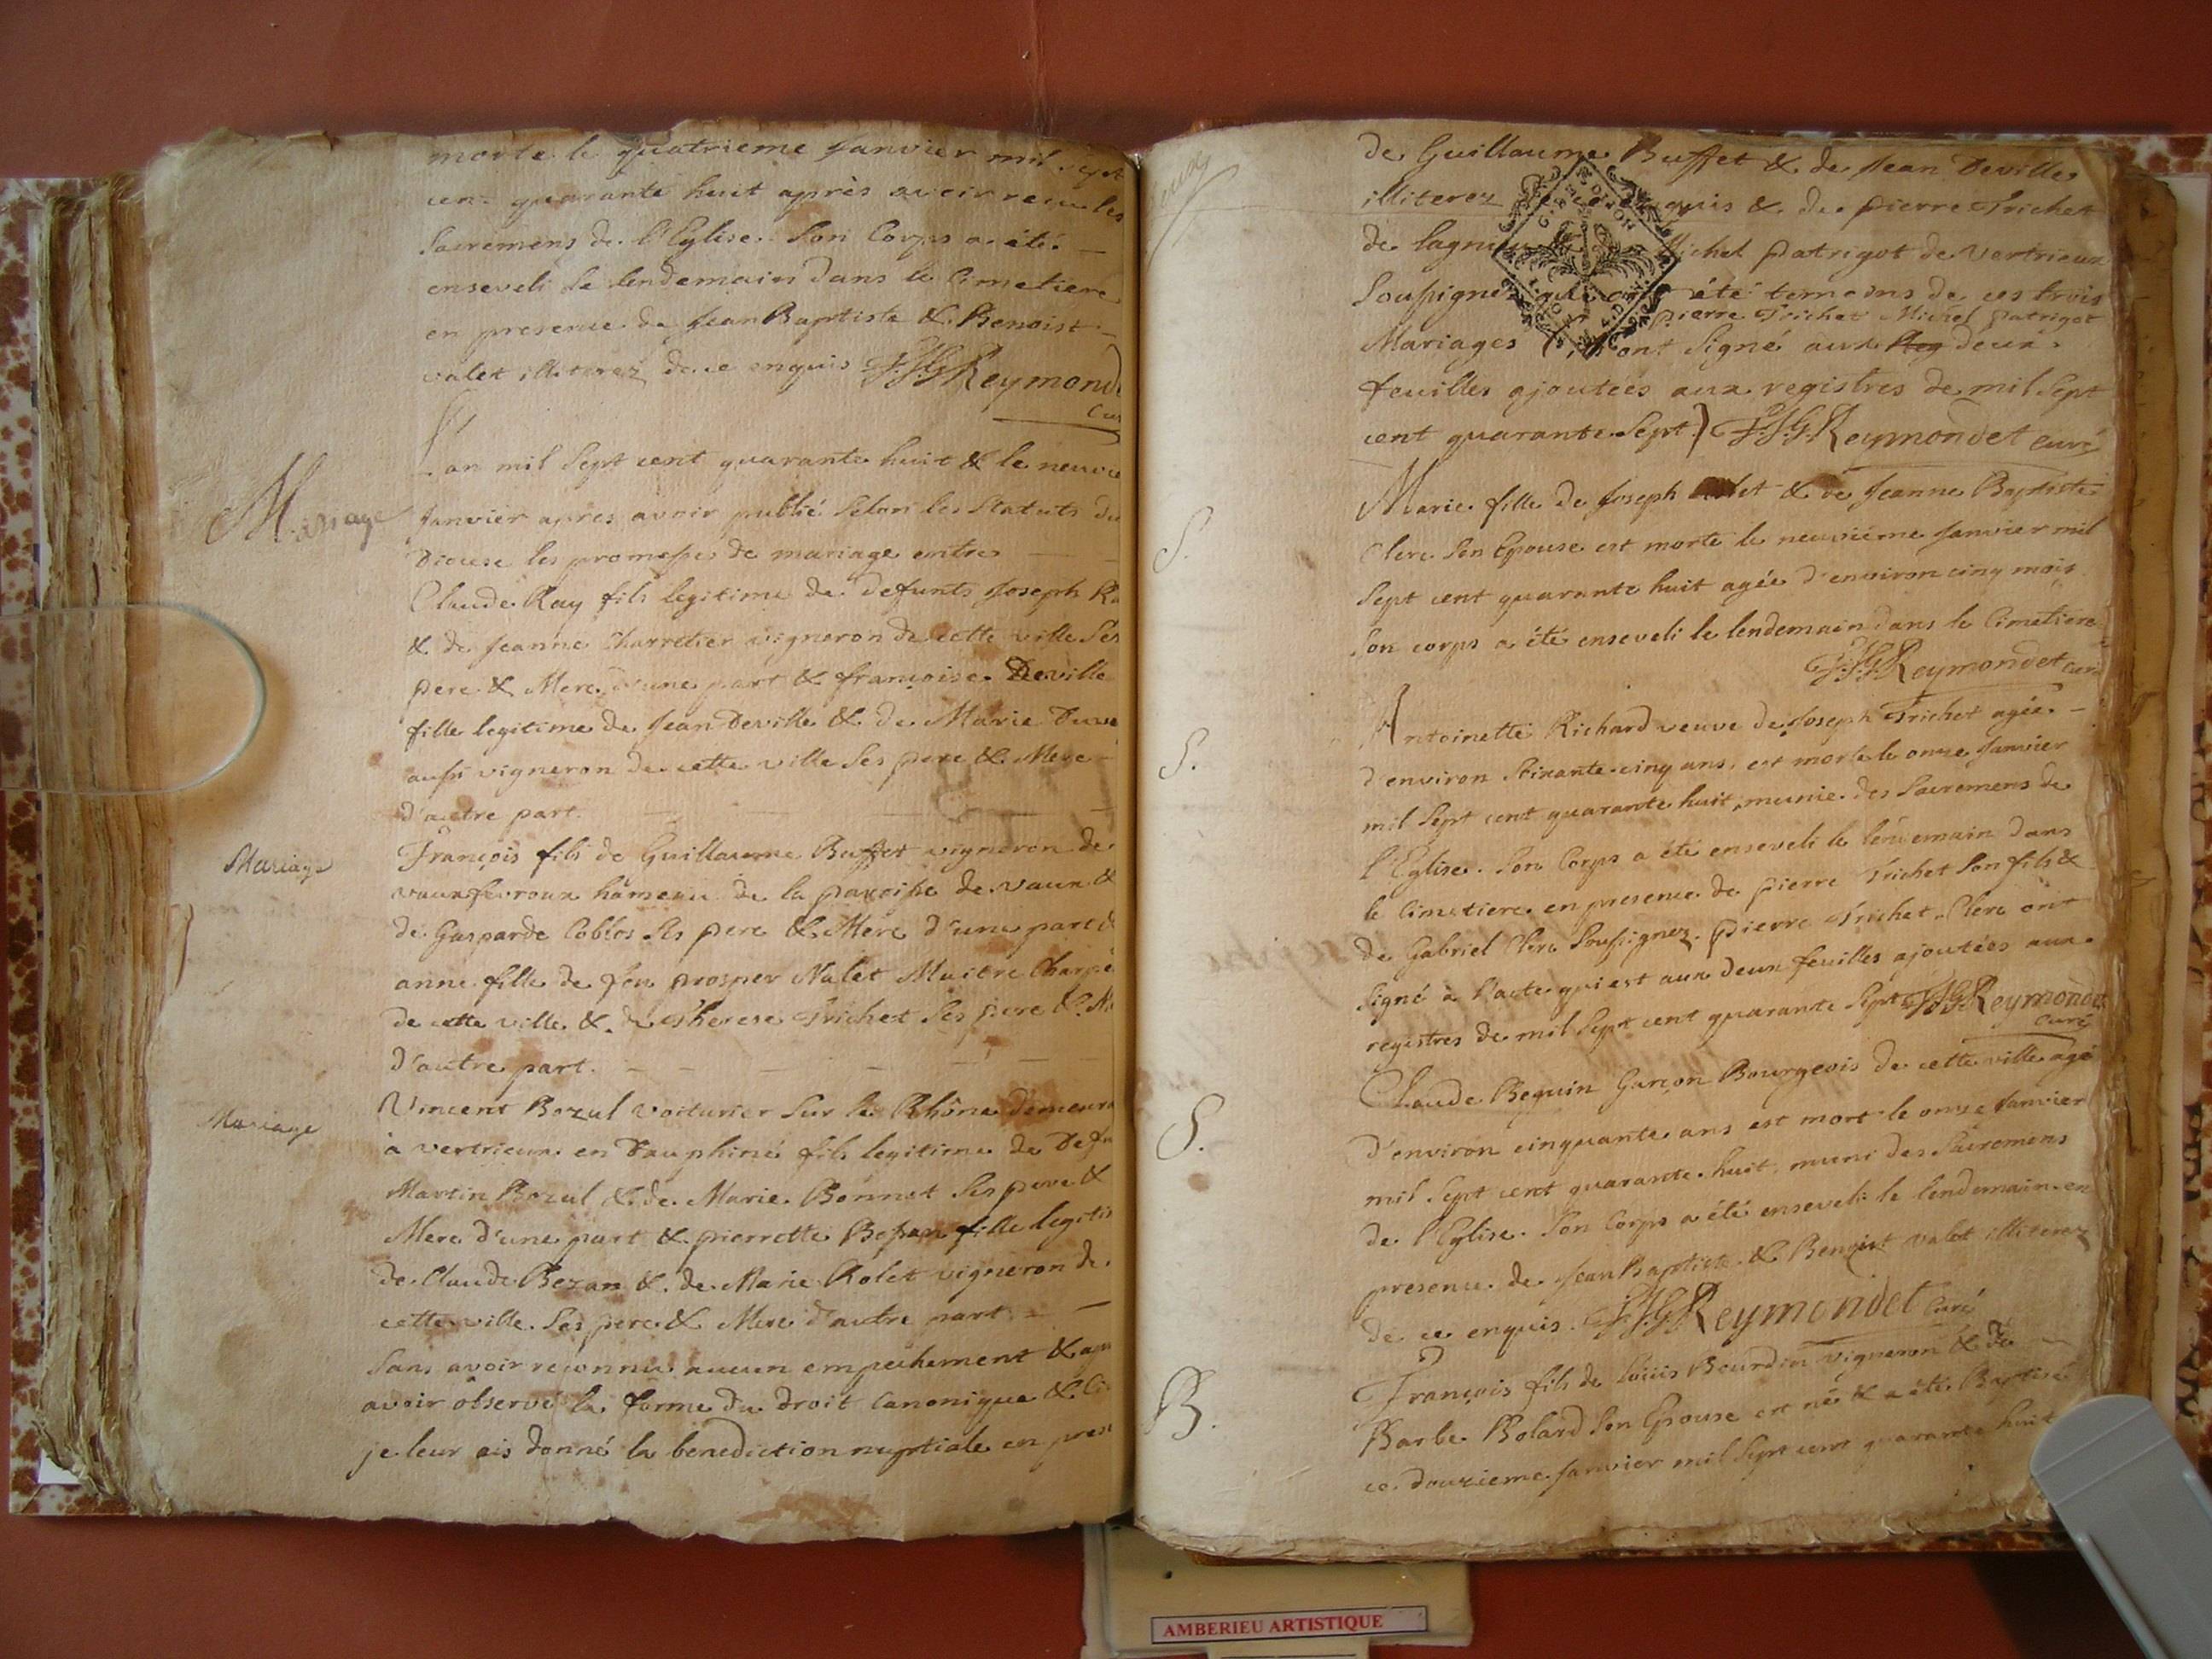 morte le quatrieme Janvier mil sept
cent quarante huit après avoir recu les
Sacremens de l'Eglise. Son Corps a été
enseveli le lendemain dans le Cimetiere
en presence de Jean Baptiste & Benoist
valet illiterez de ce enquis F.J.G. Reymond
Cur
L'an mil Sept cent quarante huit & le neuvie
Mariage
Janvier apres avoir publié Selon les Statuts du
Diocese les promesses de mariage entre
Claude Ray fils legitime de defunts Joseph Ra
& de Jeanne Charretier vigneron de cette ville Ses
pere & Mere d'une part & françoise Deville
fille legitime de Jean Deville & de Marie
aussi vigneron de cette ville Ses pere & Mere
d'autre part.
Mariage
François fils de Guillaume Buffet vigneron de
vauxfevroux hâmeau de la paroisse de vaux &
de Gasparde Coblos Ses pere & Mere d'une part &
anne fille de feu prosper Nalet Maitre Charpe
de cette ville & de Therese Trichet Ses pere & M
d'autre part.
Mariage
Vincent Bozul voiturier Sur le Rhône demeura
à vertrieux en Dauphiné fils legitime de Defu
Martin Bozul & de Marie Bonnet Ses pere &
Mere d'une part & pierrette Besan fille legiti
de Claude Bezan & de Marie Rolet vigneron de
cette ville Ses pere & Mere d'autre part.
Sans avoir reconnu aucun empechement & apr
avoir observé la forme du droit Canonique & Ci
je leur ais donné la benediction nuptiale en prese
de Guillaume Buffet & de Jean Deville
illiterez de ce enquis & de pierre Trichet
de lagnieu Michel patrigot de vertrieux
Soussignez qui ont été temoins de ces trois
pierre Trichet Michel patrigot
Mariages ont Signé aux Reg deux
feuilles ajoutées aux registres de mil Sept
cent quarante Sept) F.J.G. Reymondet curé
S.
Marie fille de Joseph & de Jeanne Baptiste
Clerc Son Epouse est morte le neuviéme Janvier mil
Sept cent quarante huit agée d'environ cinq mois
Son corps a été enseveli le lendemain dans le Cimetiere
F.J.G. Reymondet curé
S.
Antoinette Richard veuve de Joseph Trichet agée
d'environ Soixante-cinq ans, est morte le onze Janvier
mil Sept cent quarante huit, munie des Sacremens de
l'Eglise. Son Corps a été enseveli le lendemain dans
le Cimetiere en presence de pierre Trichet Son fils &
de Gabriel Clerc Soussignez. pierre Trichet. Clerc ont
Signé à l'acte qui est aux deux feuilles ajoutées aux
registres de mil Sept cent quarante Sept F.J.G. Reymondet
Curé
S.
Claude Bequin Garçon Bourgeois de cette ville agé
d'environ cinquante ans est mort le onze Janvier
mil Sept cent quarante huit, muni des Sacremens
de l'Eglise. Son Corps a été enseveli le lendemain en
presence de Jean Baptiste & Benoist valet illiterez
de ce enquis. F.J.G. Reymondet Curé
B.
François fils de Loüis Bourdin vigneron & de
Barbe Bolard Son Epouse est né & a été Baptisé
ce douzieme Janvier mil Sept cent quarante huit
AMBERIEU ARTISTIQUE